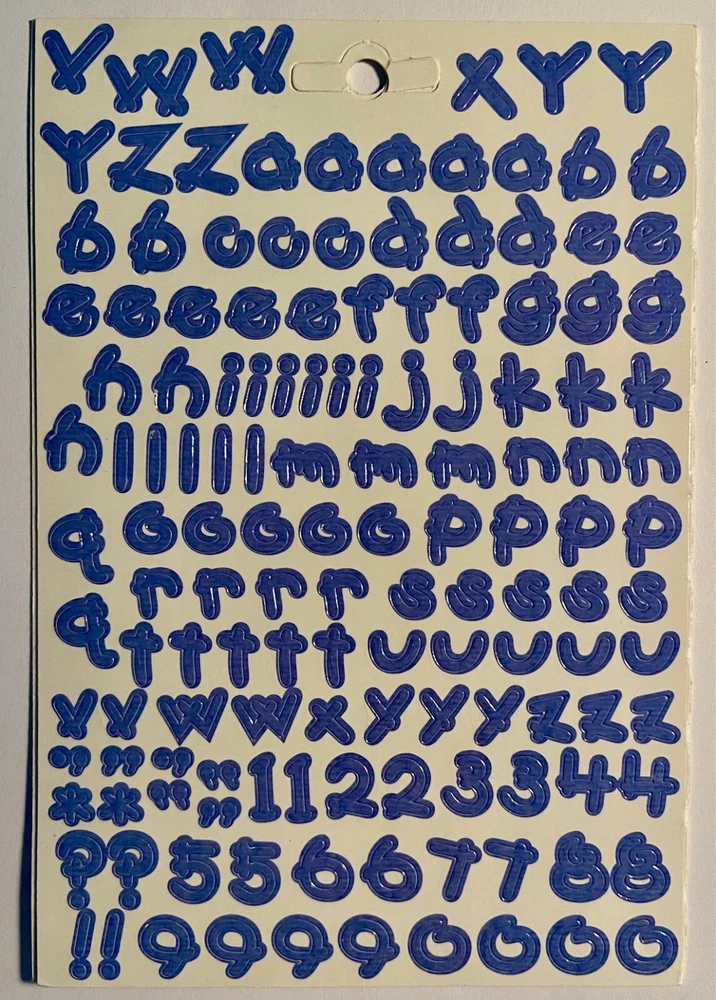 V W W X Y Y
Y Z Z a a a a a b b
b b c c c d d d e e
e e e e e f f f g g g
h h i i i i i i j j k k k
h l l l l l m m m n n n
q o o o o o p p p p
r r r r s s s s s
q t t t t t u u u u u
v v w w x y y y z z z
" " " " 1 1 2 2 3 3 4 4
* * " "
? ? 5 5 6 6 7 7 8 8
! ! 9 9 9 9 0 0 0 0